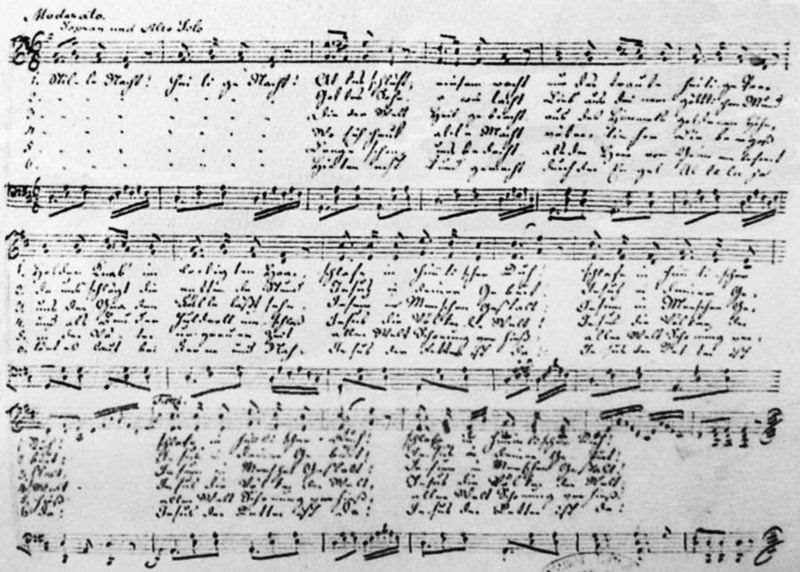 Moderato.
Sopran und Alto Solo
1. Stille Nacht! Heilige Nacht! Alles schläft; einsam wacht nur das traute heilige Paar
2. Gottes Sohn, o wie lacht Lieb aus deinem göttlichen Mund
3. Die der Welt Heil gebracht, aus des Himmels goldenen Höhn
4. Wo sich heut alle Macht väterlicher Liebe ergoß
5. Lange schon uns bedacht, als der Herr vom Grimme befreit
6. Hirten erst kund gemacht durch der Engel Alleluja
1. Holder Knab im lockigten Haar, schlafe in himmlischer Ruh! schlafe in himmlischer
2. da uns schlägt die rettende Stund Jesus in deiner Geburt! Jesus in deiner Ge-
3. uns der Gnaden Fülle läßt sehn Jesum in Menschen Gestalt! Jesum in Menschen Ge-
4. und als Bruder huldvoll umschloß Jesus die Völker der Welt! Jesus die Völker der
5. in der Väter urgrauer Zeit aller Welt Schonung verhieß! aller Welt Schonung ver-
6. tönt es laut bei Ferne und Nah: Jesus der Retter ist da! Jesus der Retter ist
1. Ruh! schlafe in himmlischer Ruh! schlafe in himmlischer Ruh!
2. burt! Jesus in deiner Geburt! Jesus in deiner Geburt!
3. stalt, Jesum in Menschen Gestalt! Jesum in Menschen Gestalt!
4. Welt Jesus die Völker der Welt, Jesus die Völker der Welt!
5. hieß aller Welt Schonung verhieß! aller Welt Schonung verhieß!
6. da! Jesus der Retter ist da! Jesus der Retter ist da!